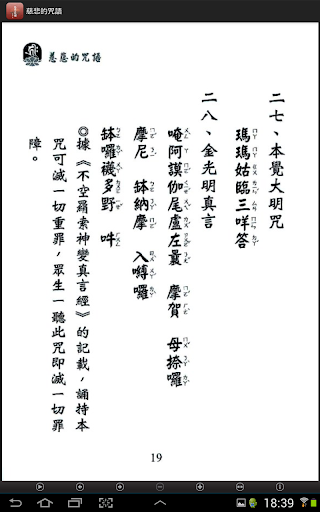 慈悲的咒語
慈悲的咒語
二七、本覺大明咒
瑪瑪姑臨三咩答
二八、金光明真言
唵阿謨伽尾盧左曩 摩賀 母捺囉
摩尼 鉢納摩 入嚩囉
鉢囉襪多野 吽
◎據《不空羂索神變真言經》的記載，誦持本
咒可滅一切重罪，眾生一聽此咒即滅一切罪
障。
19
18:39